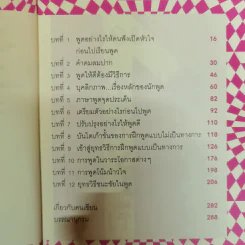 บทที่ 1 พูดอย่างไรให้คนฟังเปิดหัวใจ 16
ก่อนไปเรียนพูด
บทที่ 2 คำคมลมปาก 30
บทที่ 3 พูดให้ดีต้องมีวิธีการ 46
บทที่ 4 บุคลิกภาพ...เรื่องหลักของนักพูด 60
บทที่ 5 ภาษาพูดจุดประเด็น 82
บทที่ 6 เตรียมตัวอย่างไรก่อนไปพูด 92
บทที่ 7 ปรับปรุงอย่างไรให้พูดดี 100
บทที่ 8 บันไดเก้าขั้นของการฝึกพูดแบบไม่เป็นทางการ 118
บทที่ 9 เข้าสู่ยุทธวิธีการฝึกพูดแบบเป็นทางการ 126
บทที่ 10 การพูดในวาระโอกาสต่างๆ 176
บทที่ 11 การพูดโน้มน้าวใจ 198
บทที่ 12 ยุทธวิธีชนะชัยในพูด 206
เกี่ยวกับคนเขียน 282
บรรณานุกรม 288